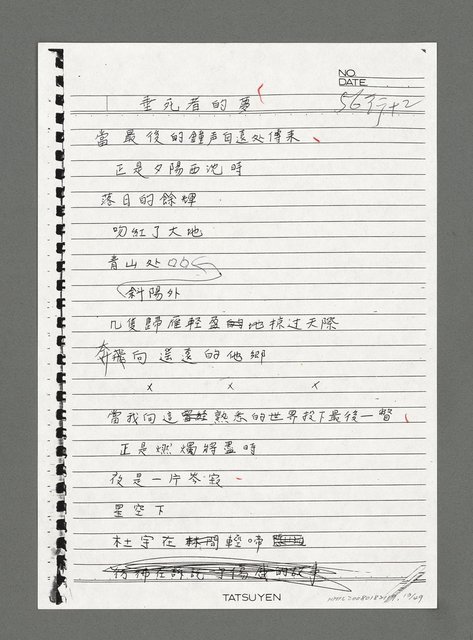 NO.
DATE
56行+2
垂死者的夢
當最後的鐘声自遠处傳来、
正是夕陽西沈時
落日的餘輝
吻紅了大地
青山处
斜陽外
几隻歸雁輕盈地掠过天際
奔向遥遠的他鄉
x x x
當我向這熟悉的世界投下最後一瞥、
正是燃燭將盡時
夜是一片岑寂
星空下
杜宇在林間輕啼
彷彿在訴說 傷感的故事
TATSUYEN